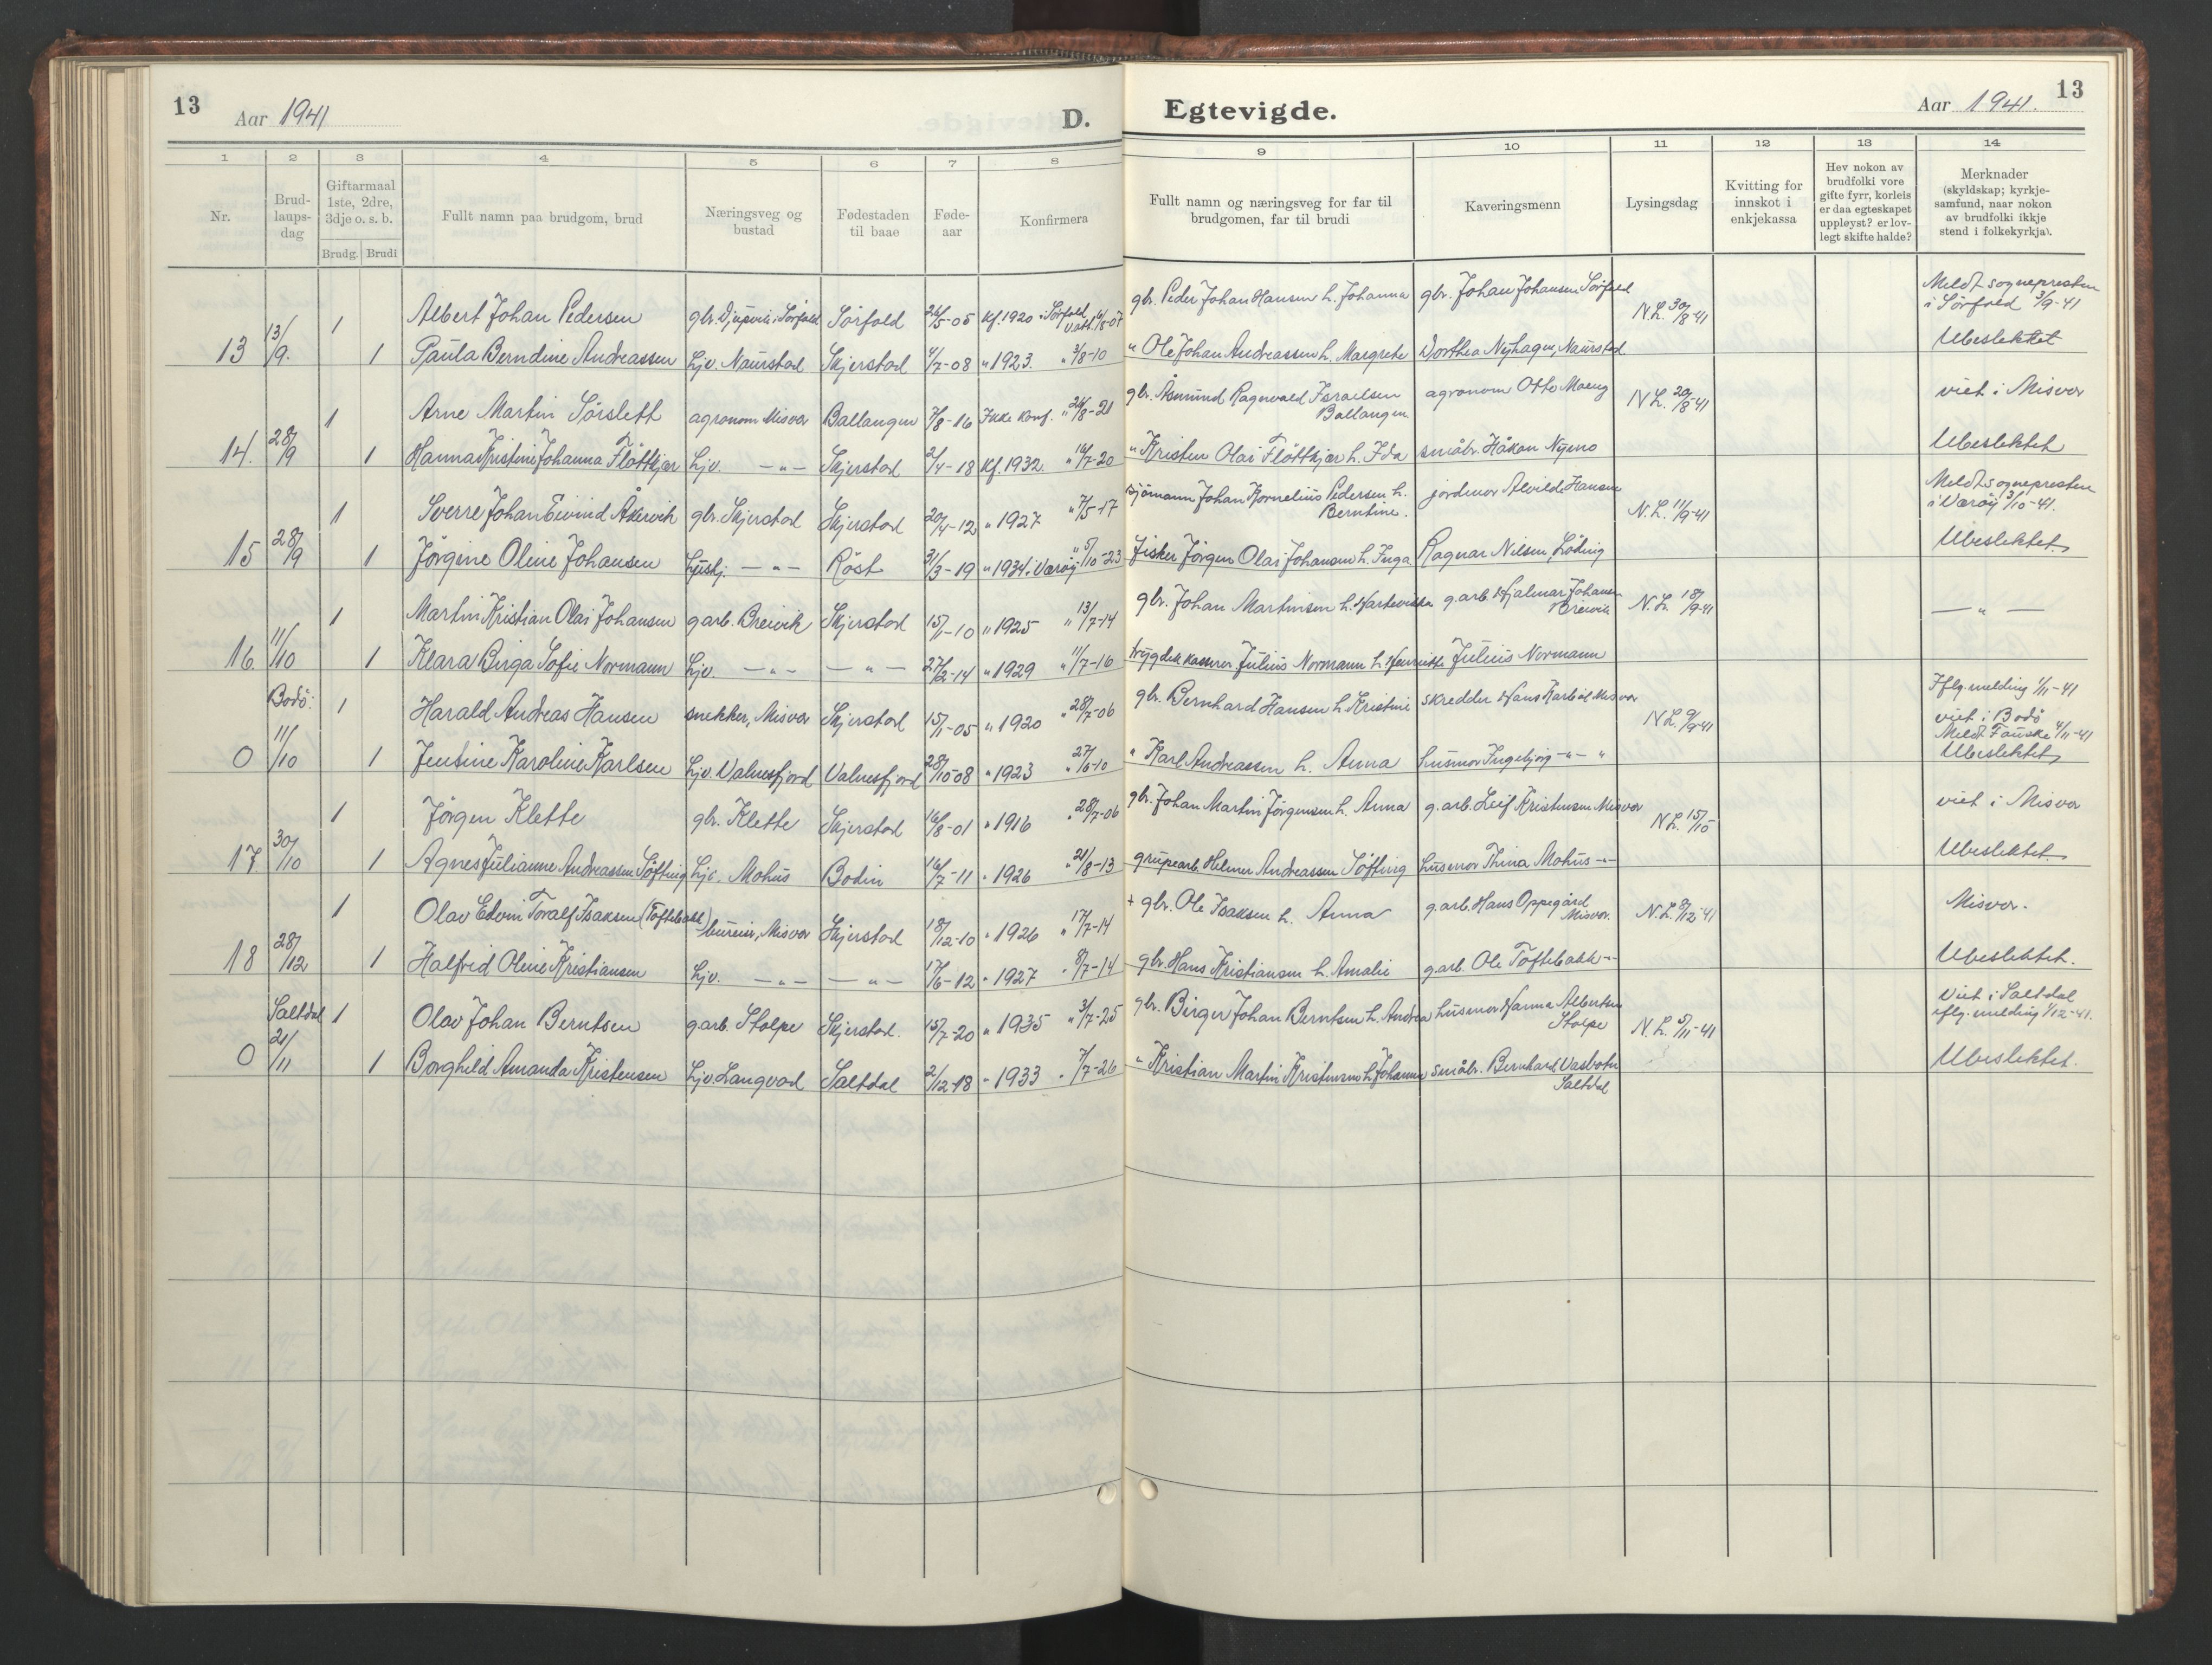 13 Aar 1941 D. Egtevigde. Aar 1941. 13
1 2 3 4 5 6 7 8 9 10 11 12 13 14
Nr.
Brud-
laups-
dag
Giftarmaal
1ste, 2dre,
3dje o. s. b.
Brudg. Brudi
Fullt namn paa brudgom, brud
Næringsveg og
bustad
Fødestaden
til baae
Føde-
aar
Konfirmera
Fullt namn og næringsveg for far til
brudgomen, far til brudi
Kaveringsmenn
Lysingsdag
Kvitting for
innskot i
enkjekassa
Hev nokon av
brudfolki vore
gifte fyrr, korleis
er daa egteskapet
uppløyst? er lov-
legt skifte halde?
Merknader
(skyldskap; kyrkje-
samfund, naar nokon
av brudfolki ikkje
stend i folkekyrkja).
1 Albert Johan Pedersen gbr. Djupvik i Sørfold Sørfold 26/5-05 Kf. 1920 i Sørfold gbr. Peder Johan Hansen h. Johanna gbr. Johan Johansen Sørfold N.L. 30/8-41 Meldt sognepresten
i Sørfold 3/9-41
13 13/9. 1 Paula Berndine Andreassen hjv. Naurstad Skjerstad 4/7-08 " 1923. " 3/8-10 " Ole Johan Andreassen h. Margrete Dorthea Nyhagen, Naurstad. Ubeslektet
1 Arne Martin Sörslett agronom Misvær Ballangen 7/8-16 Ikke konf. " 26/8-21 gbr. Åsmund Ragnvald Israelsen
Ballangen agronom Otto Moeng N L. 20/8-41 viet i Misvær
14. 28/9 1 Hanna Kristine Johanna Flöttkjær hjv. -"- Skjerstad 2/4-18 Kf. 1932. " 18/7-20 " Kristen Olai Flöttkjær h. Ida småbr. Håkon Nymo Ubeslektet
1 Sverre Johan Eivind Åkervik gbr. Skjerstad Skjerstad 20/4-12 " 1927 " 7/5-17 sjömann Johan Kornelius Pedersen h.
Berntine. jordmor Alvilde Hansen N.L. 11/9-41 Meldt sognepresten
i Værøy 3/10-41.
15 28/9 1 Jörgine Oline Johansen hushj. -"- Röst 31/3-19 " 1934 i Værøy " 5/10-23 fisker Jörgen Olai Johansen h. Inga Ragnar Nilsen, Löding Ubeslektet.
1 Martin Kristian Olai Johansen g.arb. Breivik Skjerstad 15/1-10 " 1925 " 13/7-14 gbr. Johan Martinsen h. g.arb. Hjalmar Johansen
Breivik N.L. 18/9-41 -"-
16 11/10 1 Klara Birga Sofie Normann hjv. -"- -"- 27/2-14 " 1929 " 11/7-16 trygdekasserer Julius Normann h. Henriette Julius Normann
Bodö: 1 Harald Andreas Hansen snekker, Misvær Skjerstad 15/1-05 " 1920 " 28/7-06 gbr. Bernhard Hansen h. Kristine skredder Hans Karbøl Misvær N L. 9/9-41 Iflg. melding 1/11-41
viet i Bodö
Meldt Fauske 4/11-41
0 11/10 1 Jensine Karoline Karlsen hjv. Valnesfjord Valnesfjord 28/10-08 " 1923 " 27/6-10 " Karl Andreassen h. Anna husmor Ingebjørg -"- " Ubeslektet
1 Jörgen Klette gbr. Klette Skjerstad 16/8-01 " 1916 " 28/7-06 gbr. Johan Martin Jörgensen h. Anna g.arb. Leif Kristensen Misvær N L. 15/10 viet i Misvær
17. 30/10 1 Agnes Julianne Andreassen Söfting hjv. Mohus Bodin 16/7-11 " 1926 " 21/8-13 grubearb. Helmer Andreassen Söfting husmor Thina Mohus -"- Ubeslektet.
1 Olav Edvin Toralf Isaksen (Töftebakk) bureiser, Misvær Skjerstad 18/12-10 " 1926 " 17/7-14 + gbr. Ole Isaksen h. Anna g.arb. Hans Oppegård
Misvær. N.L. 8/12-41 Misvær.
18 28/12 1 Halfrid Oline Kristiansen hjv. -"- -"- 17/6-12 " 1927 " 8/7-14 gbr. Hans Kristiansen h. Amalie g.arb. Ole Töftebakk -"- Ubeslektet.
Saltdal 1 Olav Johan Berntsen g.arb. Stolpe Skjerstad. 15/7-20 " 1935 " 3/7-25 gbr. Birger Johan Berntsen h. Andrea husmor Hanna Albertsen
Stolpe N.L. 5/11-41 Viet i Saltdal
iflg. melding 1/12-41.
0 21/11 1 Borghild Amanda Kristensen hjv. Langvad Saltdal 2/12-18 " 1933 " 7/7-26 " Kristian Martin Kristensen h. Johanna småbr. Bernhard Vasbotn
Saltdal Ubeslektet.